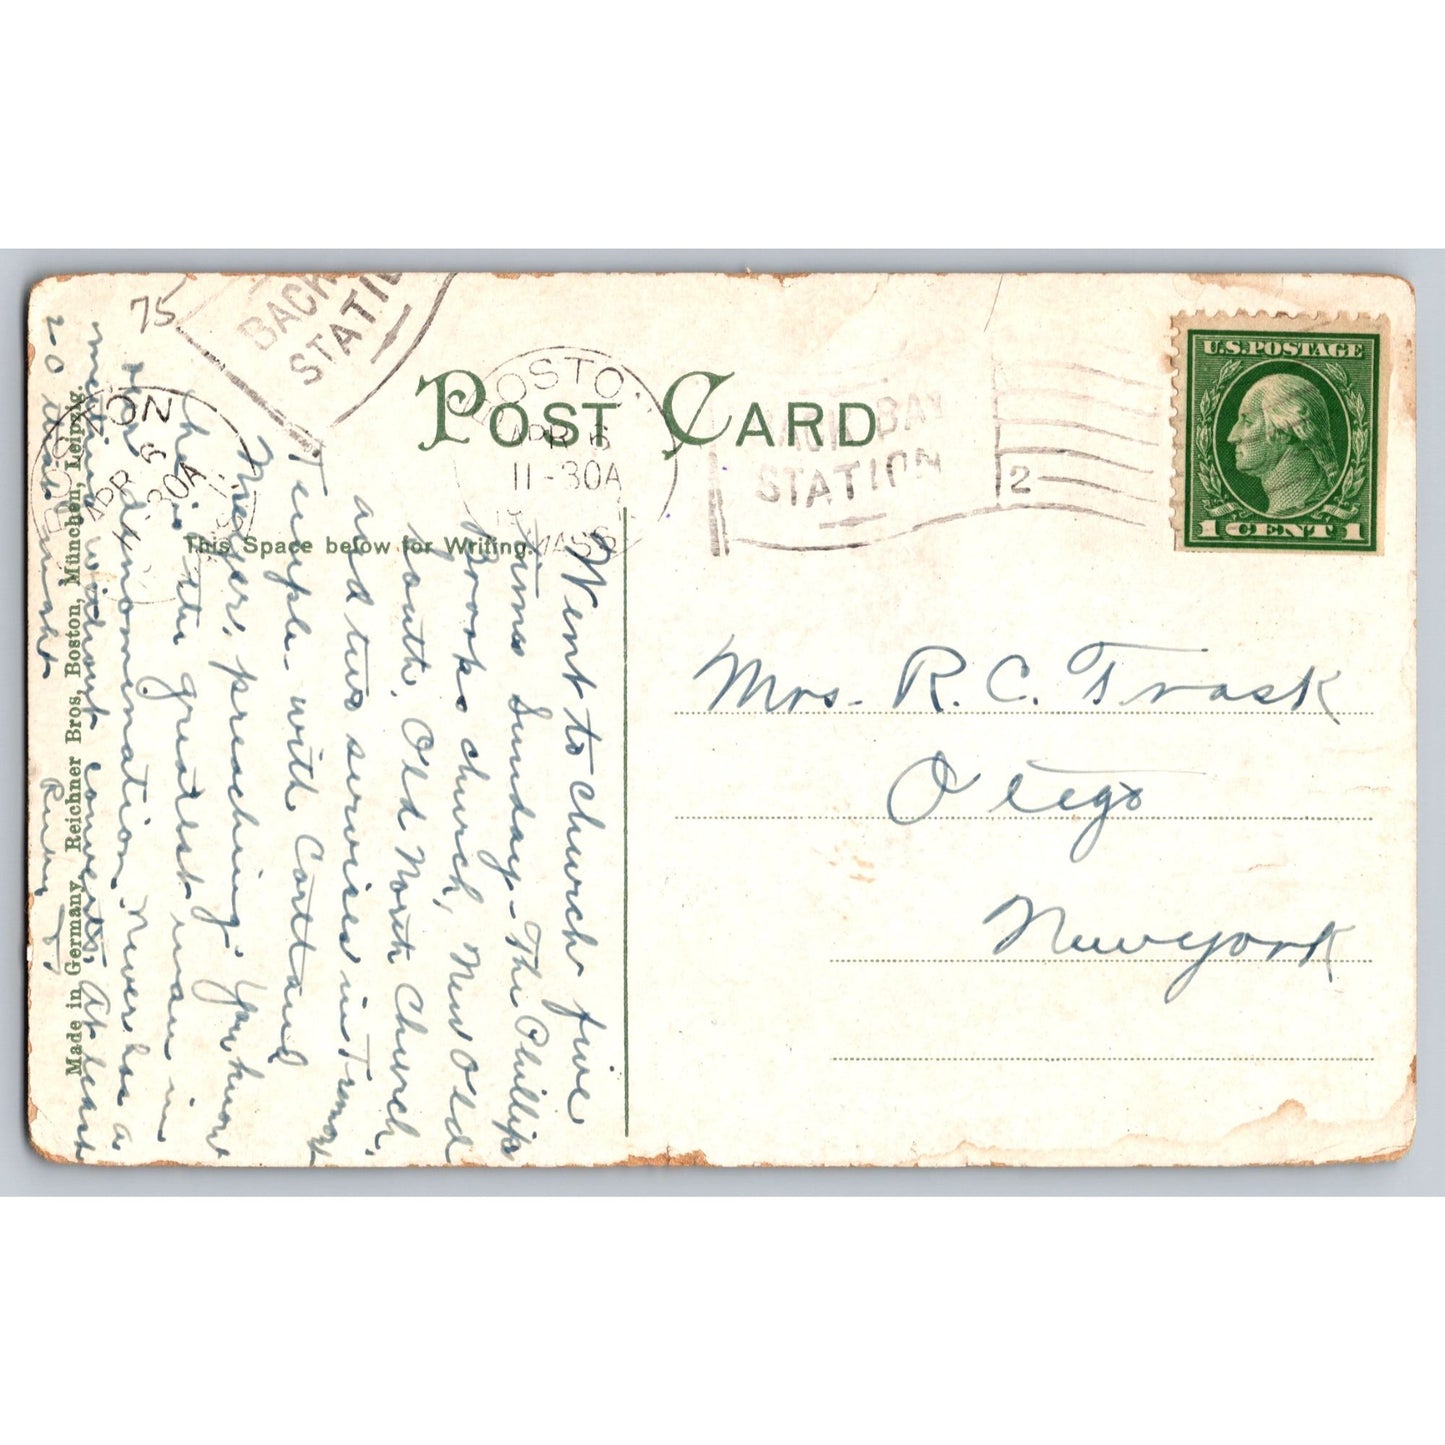 75
BACK
STATIO
BOSTON
APR 6
30A
BOSTO
APR 6
11-30A
MASS.
BACK BAY
STATION
2
POST CARD
U.S.POSTAGE
1 CENT 1
This Space below for Writing.
Made in Germany, Reichner Bros, Boston, München, Leipzig.
Went to church five
times Sunday - The Phillips
Brooks church, New Old
South, Old North Church,
and two services in Tremont
Temple with Cortland
Meyers, preaching. You know
he is the greatest man in
our denomination. Never has a
meeting without converts. At least
20 that night
Mrs. R. C. Trask
Otego
New york